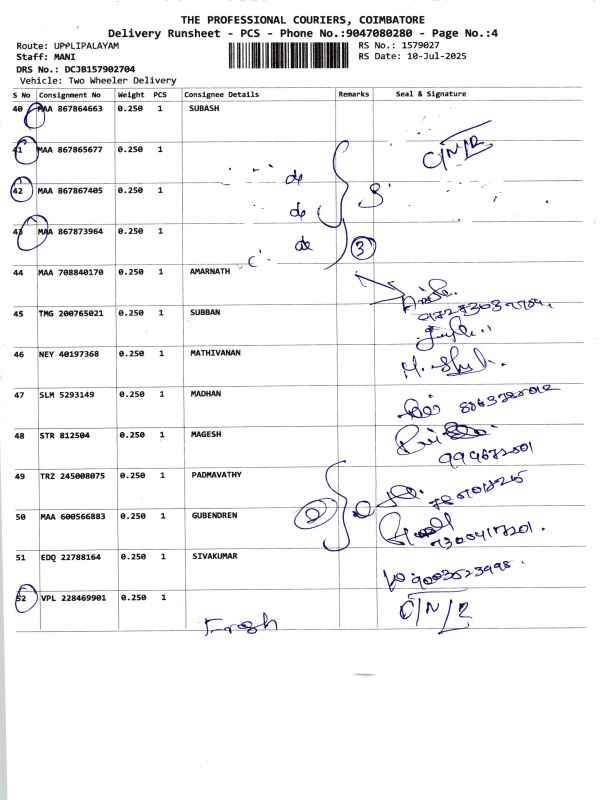 THE PROFESSIONAL COURIERS, COIMBATORE
Delivery Runsheet - PCS - Phone No.:9047080280 - Page No.:4
Route: UPPLIPALAYAM RS No.: 1579027
Staff: MANI RS Date: 10-Jul-2025
DRS No.: DCJB157902704
Vehicle: Two Wheeler Delivery
S No Consignment No Weight PCS Consignee Details Remarks Seal & Signature
40 MAA 867864663 0.250 1 SUBASH
41 MAA 867865677 0.250 1 C/N/R
42 MAA 867867405 0.250 1 do
do
43 MAA 867873964 0.250 1
do 3
44 MAA 708840170 0.250 1 AMARNATH
45 TMG 200765021 0.250 1 SUBBAN
46 NEY 40197368 0.250 1 MATHIVANAN
47 SLM 5293149 0.250 1 MADHAN
48 STR 812504 0.250 1 MAGESH
49 TRZ 245008075 0.250 1 PADMAVATHY
50 MAA 600566883 0.250 1 GUBENDREN 2
7300417201.
51 EDQ 22788164 0.250 1 SIVAKUMAR
9003523998.
52 VPL 228469901 0.250 1 C/N/R